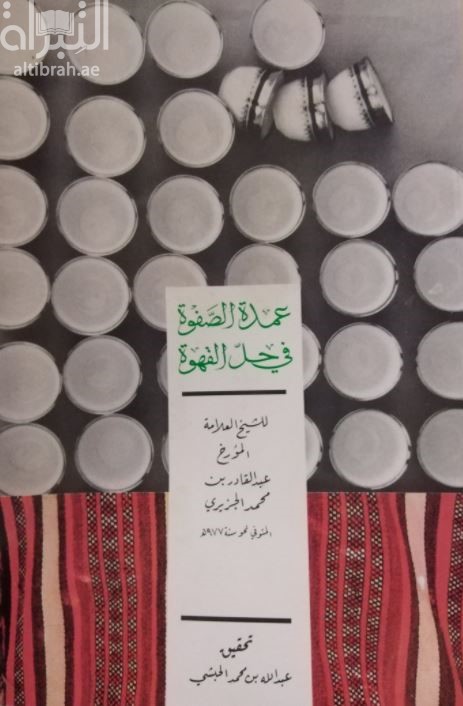 التبراة
altibrah.ae
عمدة الصفوة
في حل القهوة
للشيخ العلامة
المؤرخ
عبد القادر بن
محمد الجزيري
المتوفي نحو سنة ٩٧٧هـ
تحقيق
عبد الله بن محمد الحبشي